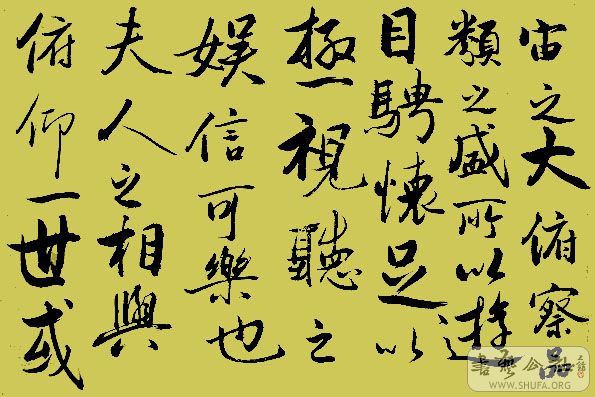 宙之大俯察品
類之盛所以遊
目騁懷足以
極一視聽之
娱信可樂也
夫人之相與
俯仰一世或
書法公社
WWW.SHUFA.ORG